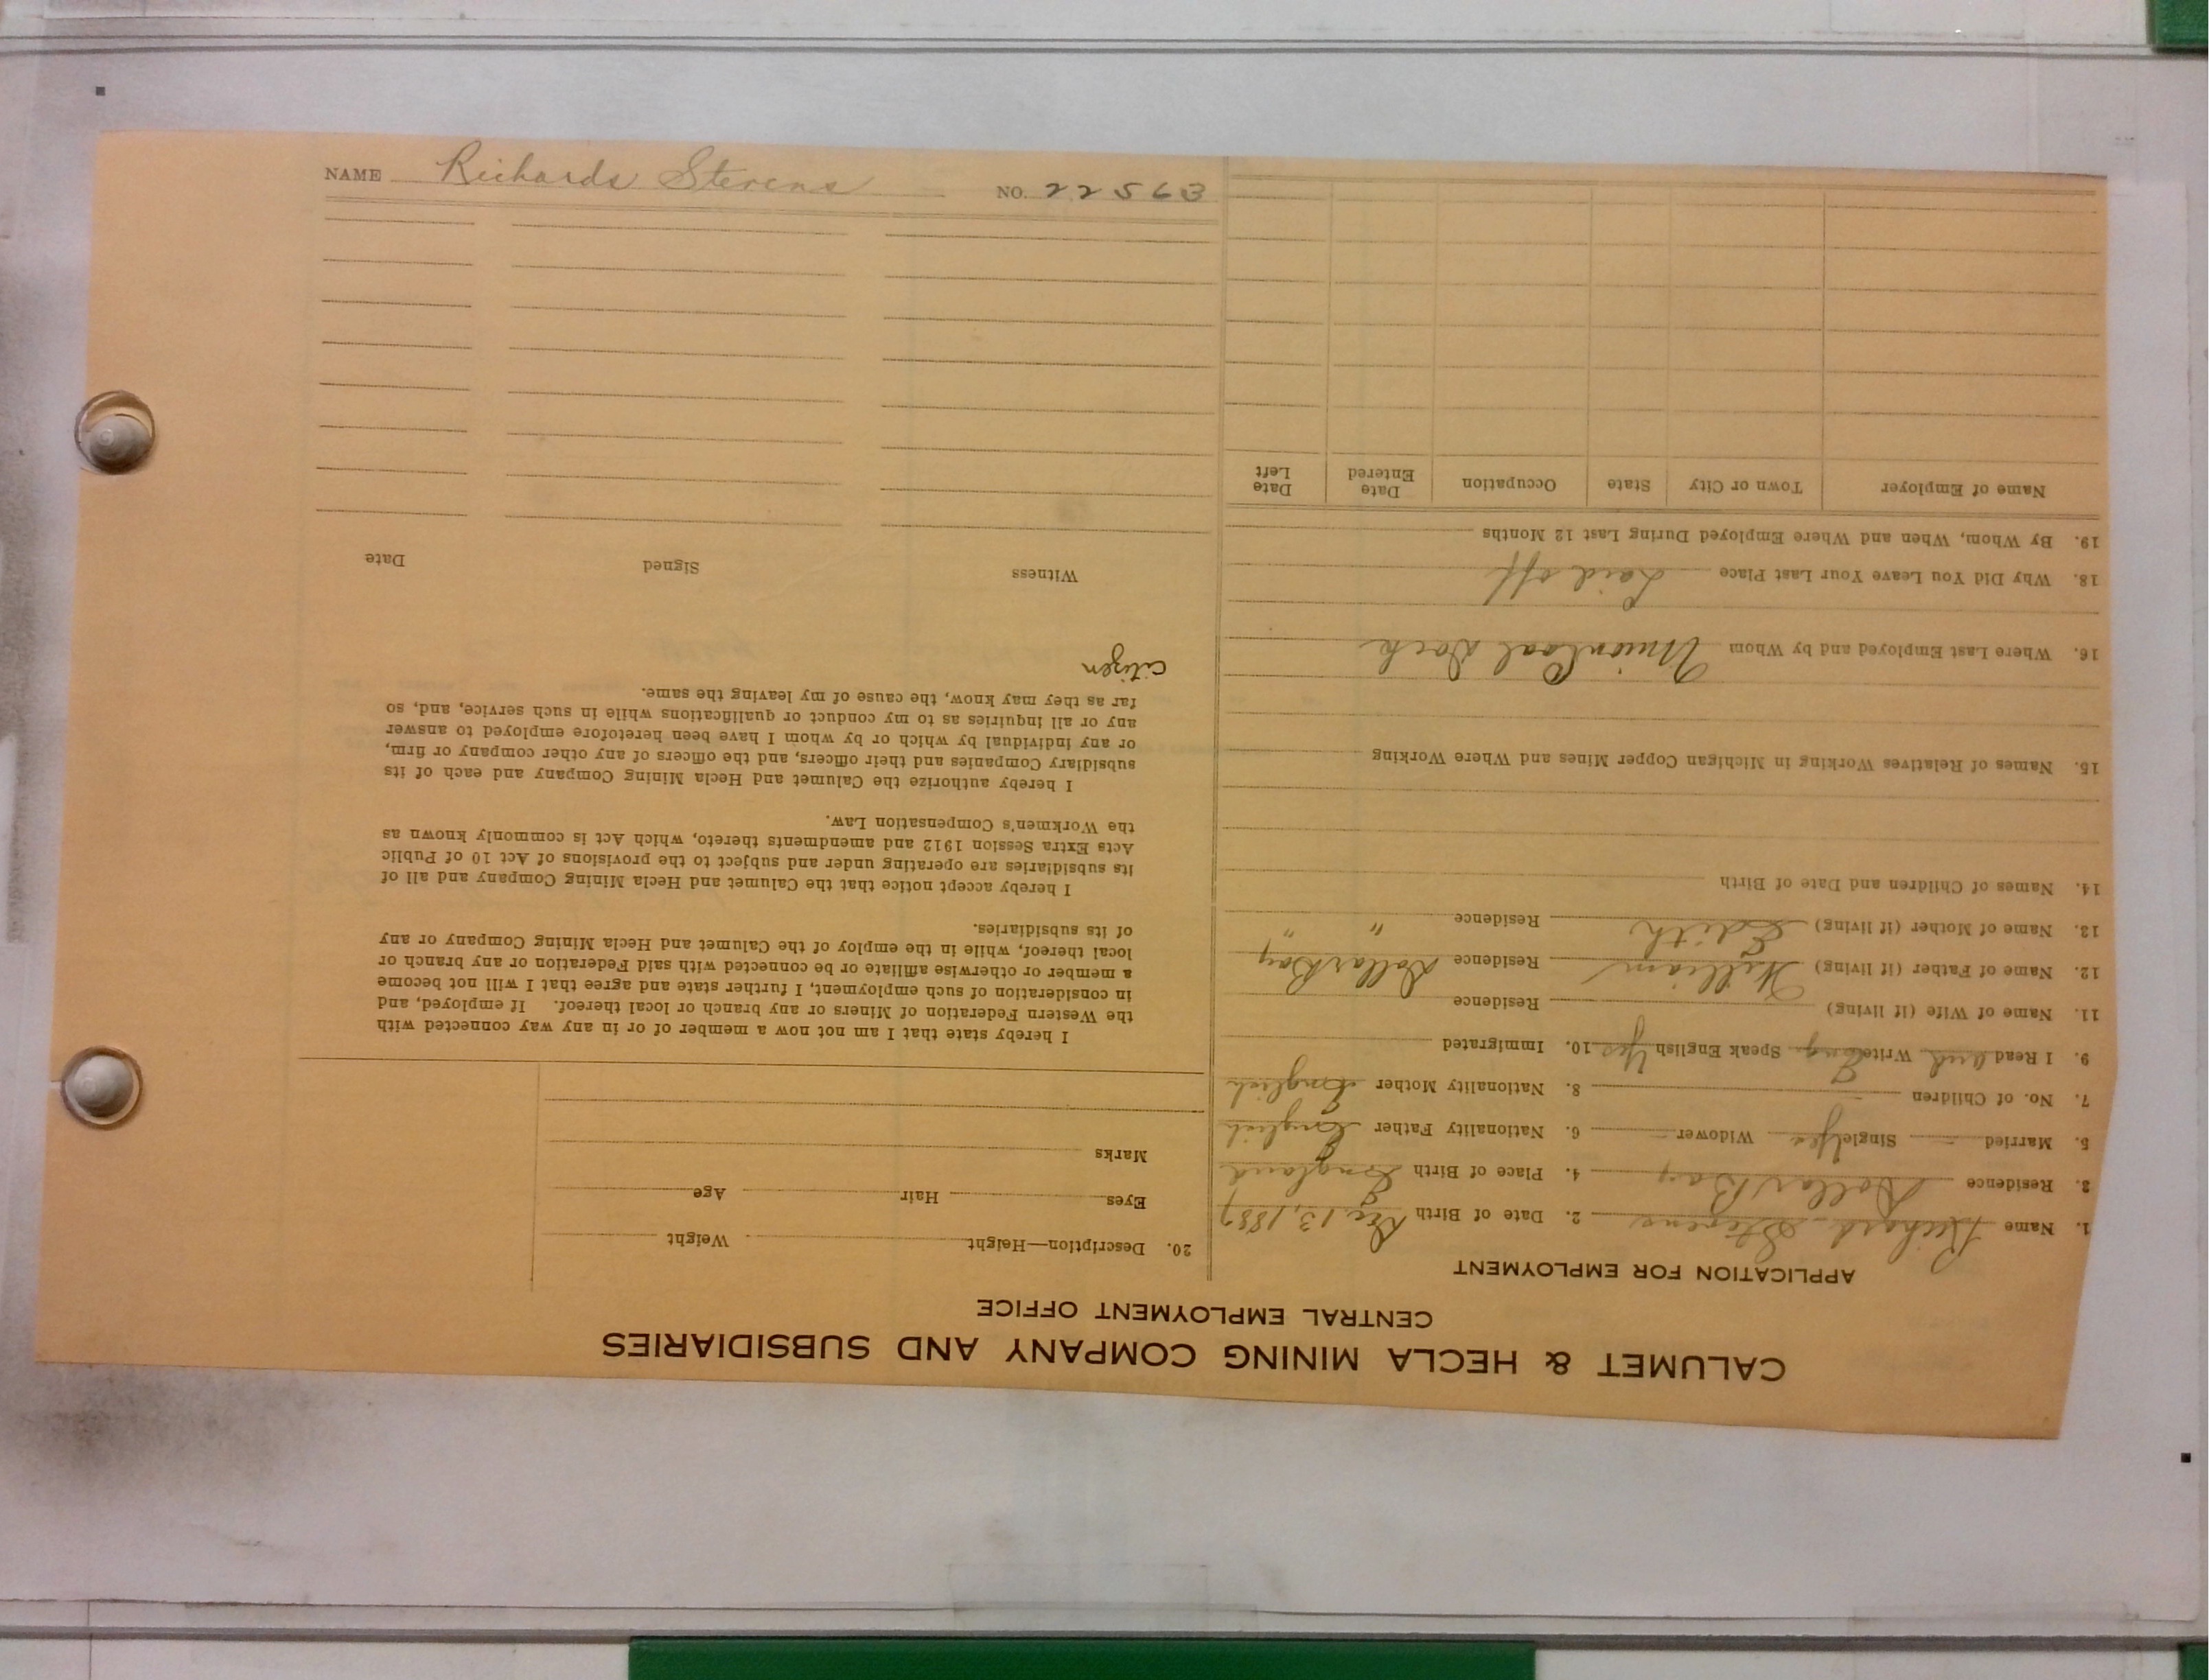 NAME Richards Stevens NO. 22563
CALUMET & HECLA MINING COMPANY AND SUBSIDIARIES
CENTRAL EMPLOYMENT OFFICE
APPLICATION FOR EMPLOYMENT
1. Name Richard Stevens 2. Date of Birth Dec. 13, 1887
3. Residence Dollar Bay 4. Place of Birth England
5. Married — Single Yes Widower — 6. Nationality Father English
7. No. of Children — 8. Nationality Mother English
9. I Read and Write Eng Speak English Yes 10. Immigrated
11. Name of Wife (if living) Residence
12. Name of Father (if living) William Residence Dollar Bay
13. Name of Mother (if living) Edith Residence " "
14. Names of Children and Date of Birth
15. Names of Relatives Working in Michigan Copper Mines and Where Working
16. Where Last Employed and by Whom Union Coal Dock
18. Why Did You Leave Your Last Place Laid off
19. By Whom, When and Where Employed During Last 12 Months
Name of Employer Town or City State Occupation Date Entered Date Left
20. Description—Height Weight
Eyes Hair Age
Marks
I hereby state that I am not now a member of or in any way connected with
the Western Federation of Miners or any branch or local thereof. If employed, and
in consideration of such employment, I further state and agree that I will not become
a member or otherwise affiliate or be connected with said Federation or any branch or
local thereof, while in the employ of the Calumet and Hecla Mining Company or any
of its subsidiaries.
I hereby accept notice that the Calumet and Hecla Mining Company and all of
its subsidiaries are operating under and subject to the provisions of Act 10 of Public
Acts Extra Session 1912 and amendments thereto, which Act is commonly known as
the Workmen's Compensation Law.
I hereby authorize the Calumet and Hecla Mining Company and each of its
subsidiary Companies and their officers, and the officers of any other company or firm,
or any individual by which or by whom I have been heretofore employed to answer
any or all inquiries as to my conduct or qualifications while in such service, and, so
far as they may know, the cause of my leaving the same.
Citizen
Witness Signed Date